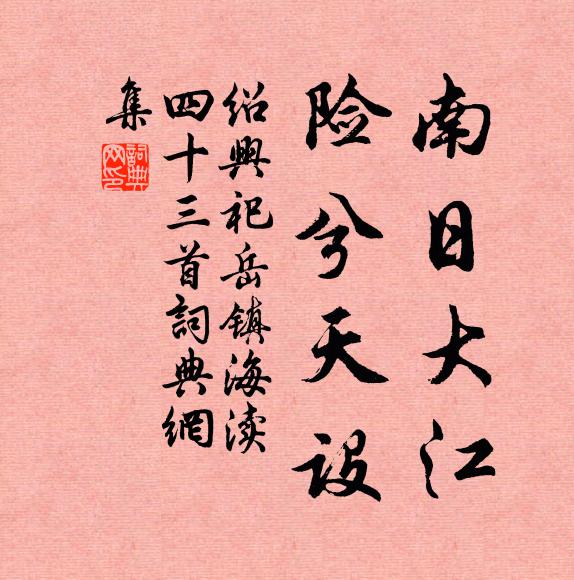 南日大江
险兮天設
绍興祀岳镇海渎
四十三首詞典網
集
詞典
网印